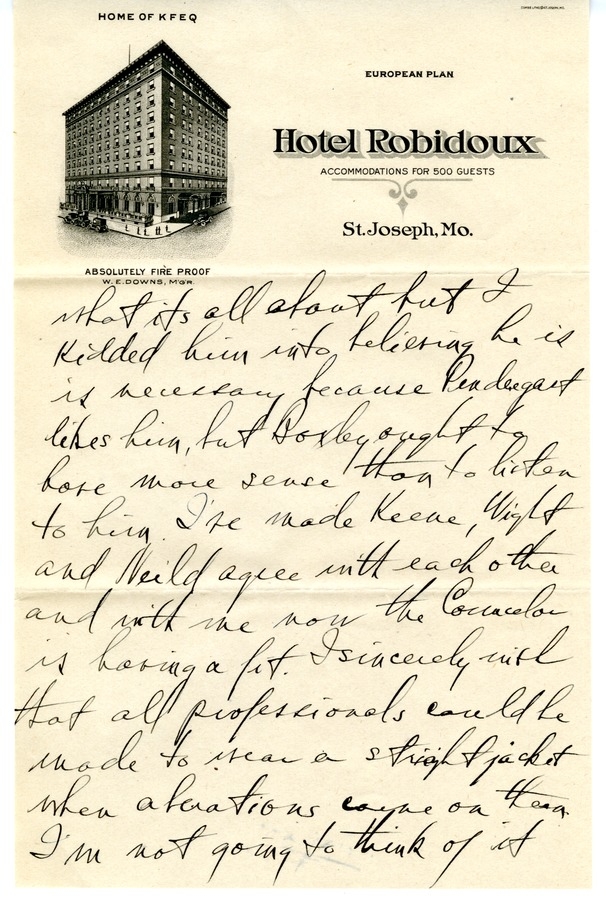 HOME OF KFEQ
EUROPEAN PLAN
Hotel Robidoux
ACCOMMODATIONS FOR 500 GUESTS
St. Joseph, Mo.
ABSOLUTELY FIRE PROOF
W. E. DOWNS, M'G'R.
what its all about but I
kidded him into believing he is
is necessary because Pendergast
likes him, but Bosley ought to
have more sense than to listen
to him. I've made Keene, Wight
and Neild agree with each other
and with me now the Councelor
is having a fit. I sincerely wish
that all professionals could be
made to wear a straight jacket
when alerations come on them.
I'm not going to think of it